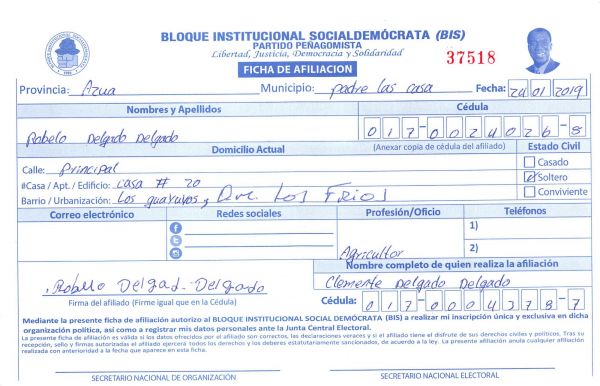 BLOQUE INSTITUCIONAL SOCIALDEMÓCRATA (BIS)
PARTIDO PEÑAGOMISTA
Libertad, Justicia, Democracia y Solidaridad
37518
FICHA DE AFILIACION
Provincia: Azua Municipio: padre las casa Fecha: 24 01 2019
Nombres y Apellidos Cédula
Robelo Delgado Delgado 017-0024026-8
Domicilio Actual (Anexar copia de cédula del afiliado) Estado Civil
Calle: Principal Casado
#Casa / Apt. / Edificio: casa # 20 Soltero
Barrio / Urbanización: Los guayuyos, Dve. Los Frios Conviviente
Correo electrónico Redes sociales Profesión/Oficio Teléfonos
1)
Agricultor 2)
Nombre completo de quien realiza la afiliación
Robello Delgad. Delgado Clemente Delgado Delgado
Firma del afiliado (Firme igual que en la Cédula) Cédula: 017-0004378-7
Mediante la presente ficha de afiliación autorizo al BLOQUE INSTITUCIONAL SOCIAL DEMÓCRATA (BIS) a realizar mi inscripción única y exclusiva en dicha
organización política, así como a registrar mis datos personales ante la Junta Central Electoral.
La presente ficha de afiliación es válida si los datos ofrecidos por el afiliado son correctos, las declaraciones veraces y si el afiliado tiene el disfrute de sus derechos civiles y políticos. Tras su
recepción, sello y firmas autorizadas el afiliado ejercerá todos los derechos y los deberes estatutariamente sancionados, de acuerdo a la ley. La presente afiliación anula cualquier afiliación
realizada con anterioridad a la fecha que aparece en esta ficha.
SECRETARIO NACIONAL DE ORGANIZACIÓN SECRETARIO NACIONAL ELECTORAL